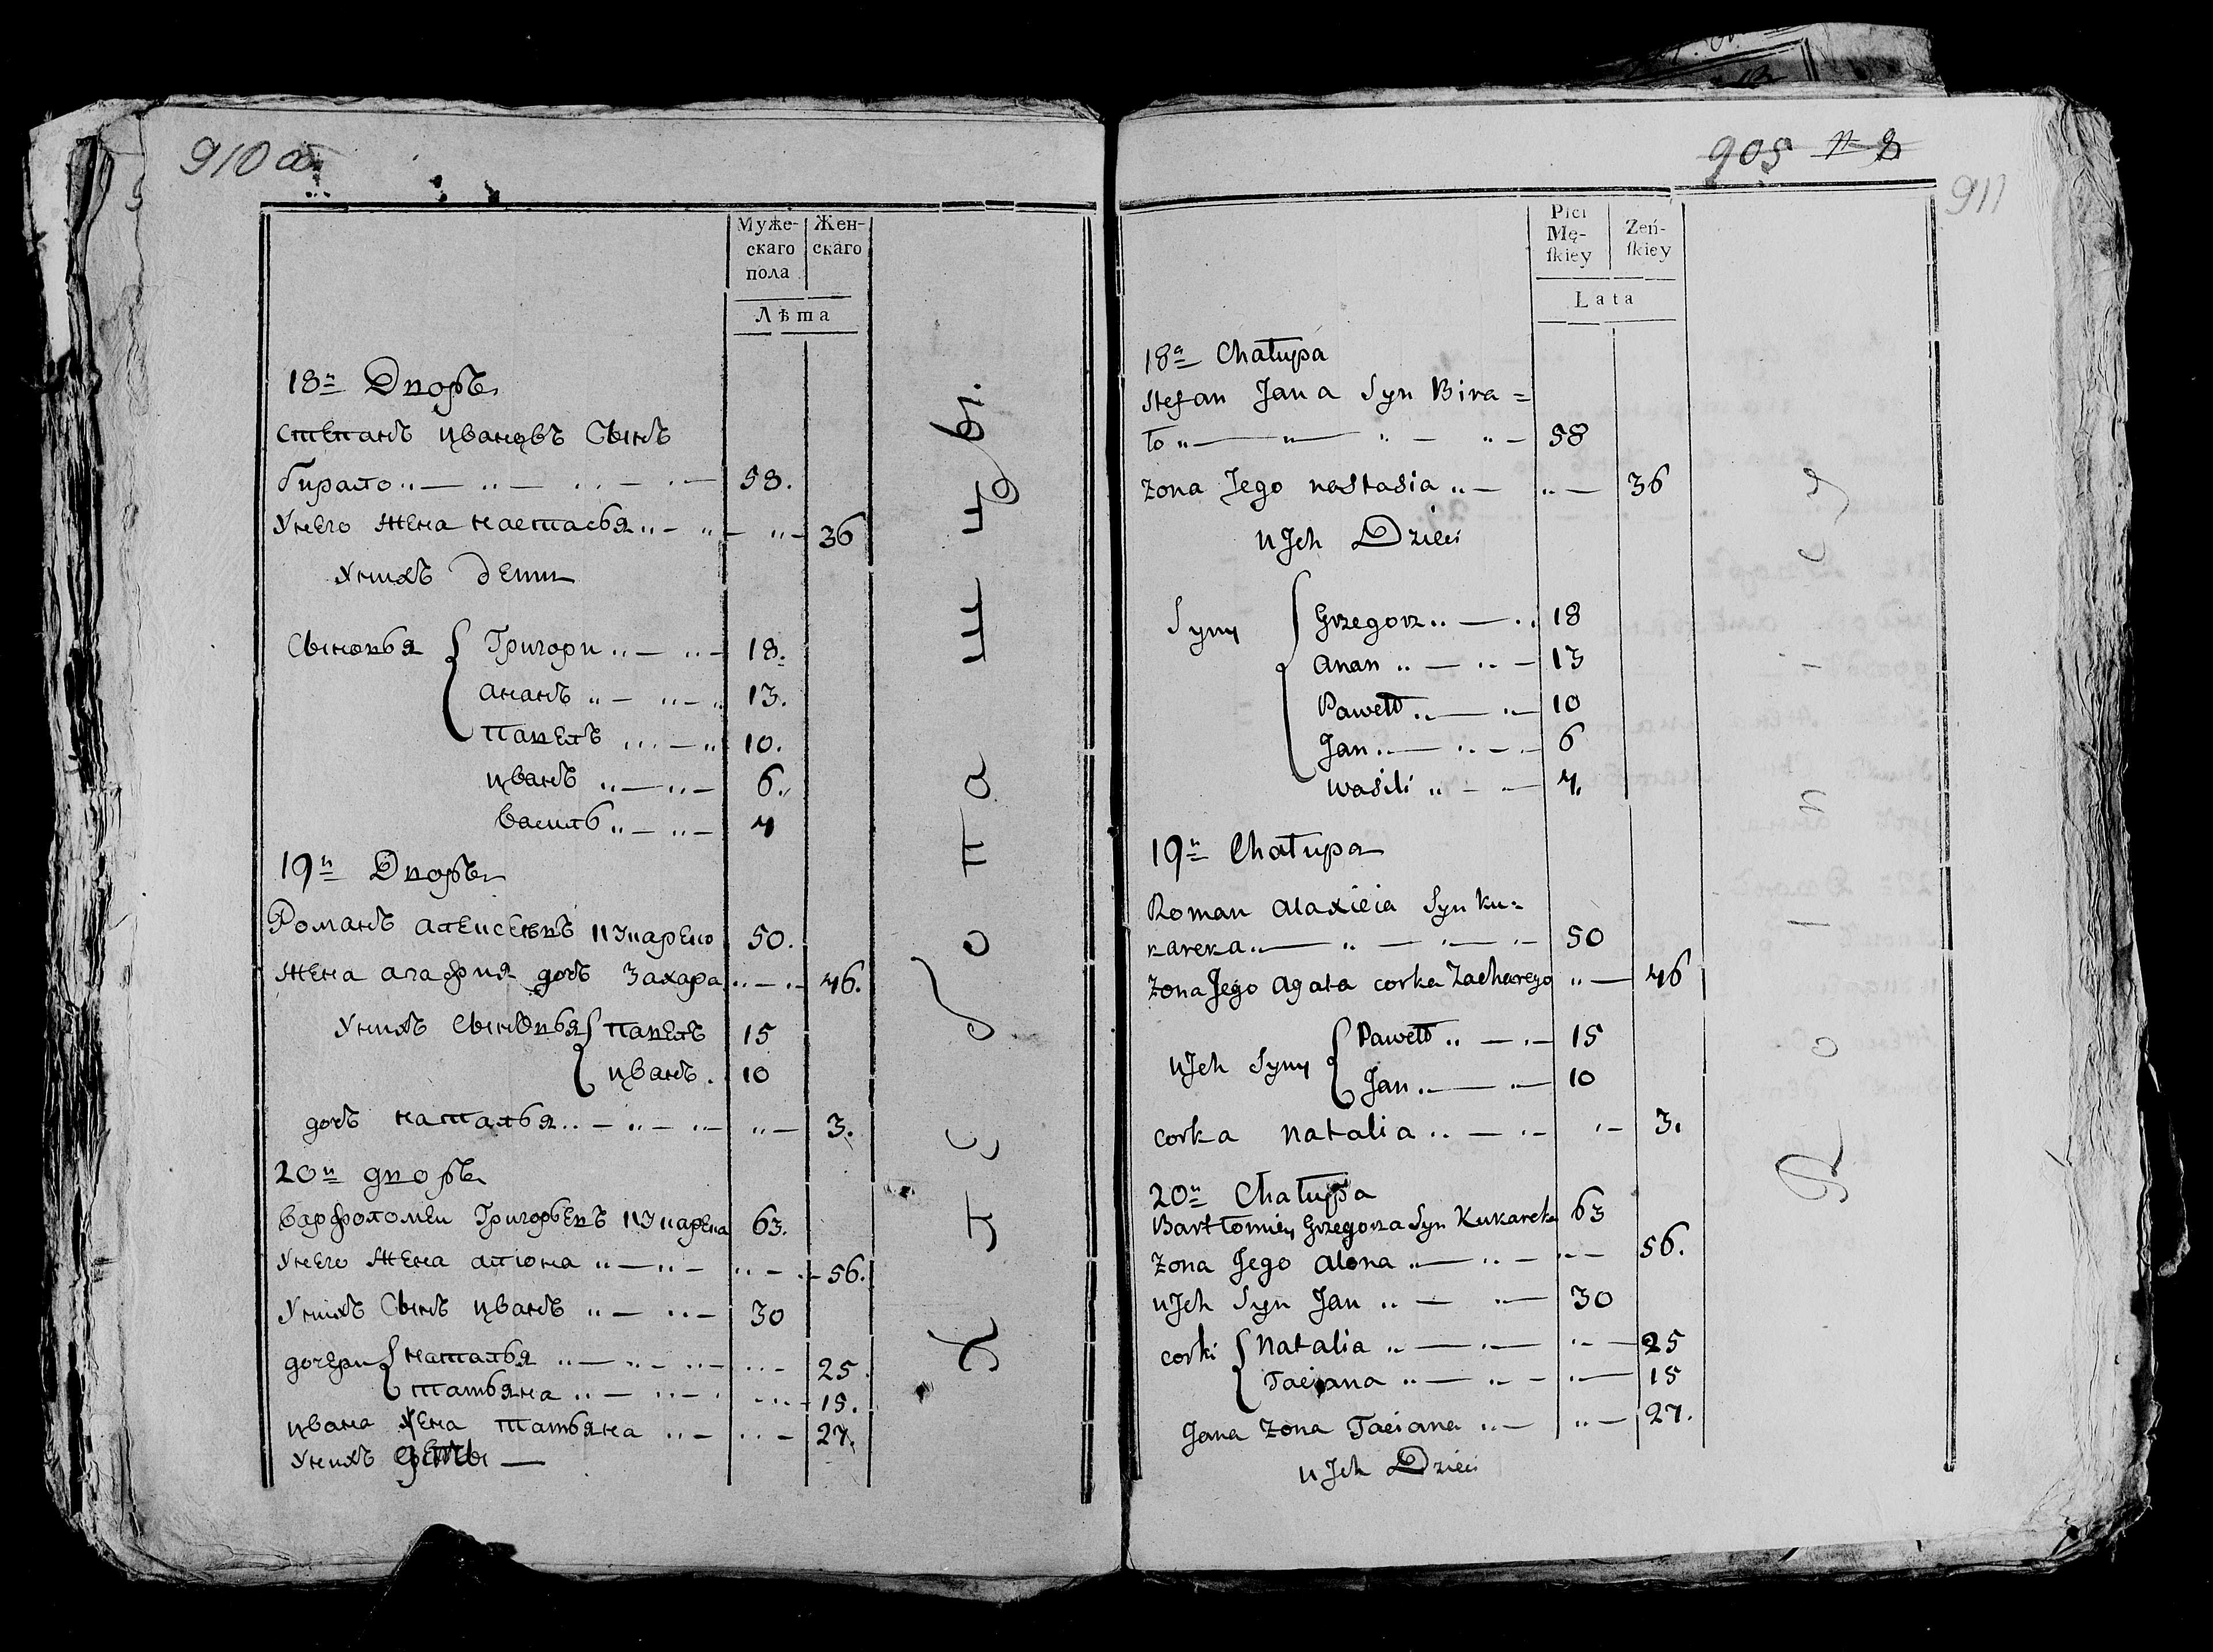 910 об.
Муже-
скаго
пола
Жен-
скаго
Лѣта
18й Дворъ
Степанъ Ивановъ Сынъ
бирало 58.
Унего жена настасья 36
Унихъ дети
Сыновья Григори 18.
ананъ 13.
павелъ 10.
Иванъ 6.
василь 4
19й Дворъ
Романъ алексеевъ
50.
жена агафия дочь Захара 46.
Унихъ Сыновья павелъ 15
Иванъ 10
дочь наталья 3.
20й дворъ
варфоломеи Григорьевъ
63.
Унего жена алюна 56.
Унихъ Сынъ Иванъ 30
дочери наталья 25.
татьяна 15.
Ивана жена татьяна 27.
Унихъ дети
905
911
Płci
Mę-
ſkiey
Żeń-
ſkiey
Lata
18a Chałupa
Stefan Jana Syn Bira=
ło 58
żona Jego nastasia 36
u Jch Dzieci
Syny Grzegorz 18
anan 13
Paweł 10
Jan 6
wasili 4
19a Chałupa
Roman alaxieia Syn Ku=
kareka 50
żona Jego agata corka Zacharego 46
u Jch Syny Paweł 15
Jan 10
corka natalia 3.
20a Chałupa
Bartłomiey Grzegorza Syn Kukareka 63
żona Jego alona 56.
u Jch Syn Jan 30
corki natalia 25
Taciana 15
Jana żona Taciana 27.
u Jch Dzieci